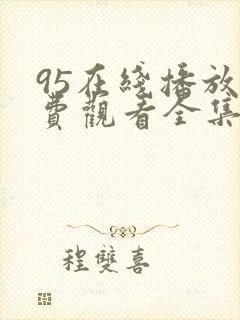 95在綫播放
費觀看全集
程雙喜